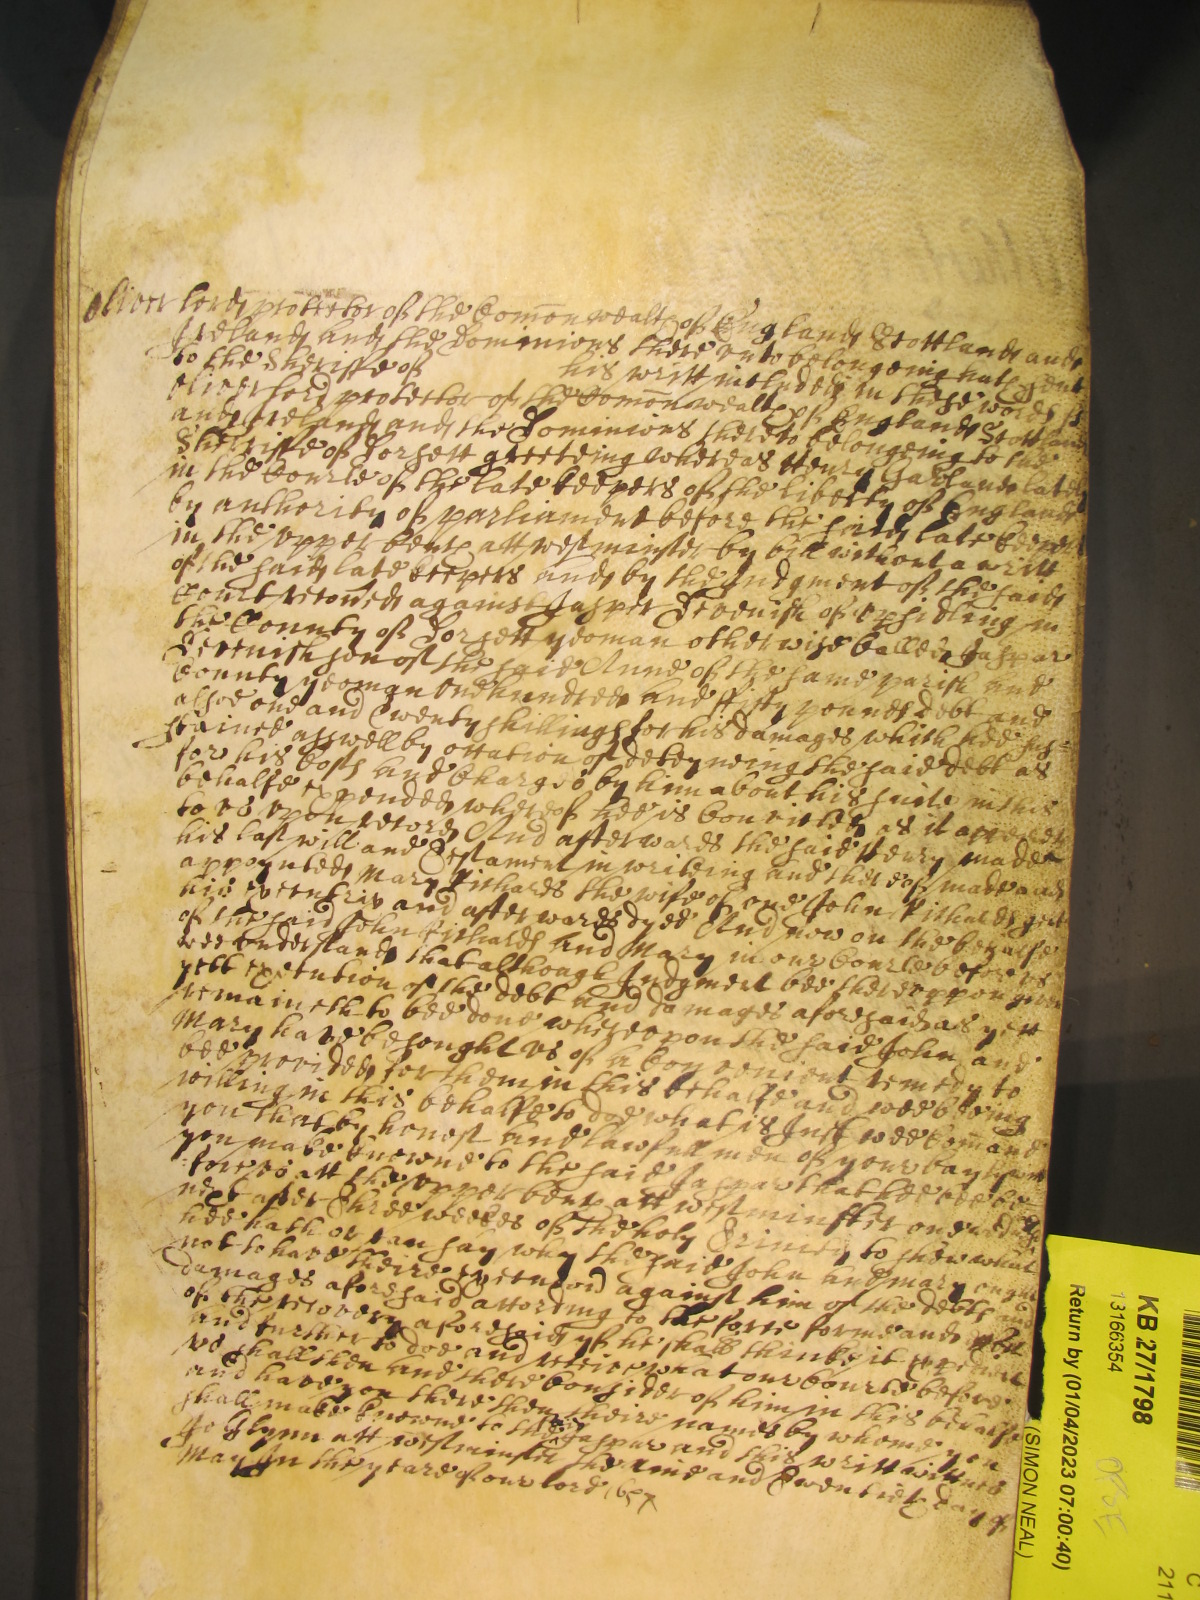 Oliver Lord protector of the Com̄onwealth of England Scottland and
Ireland and the Dominions there unto belongeing hath sent
to the Sheriffe of his writt included in these words ss
Oliver Lord protector of the Com̄onwealth of England Scottland
and Ireland and the Dominions thereto belongeing to the
Sheriffe of Dorsett greeteing whereas Henry Garland lately
in the Courte of the late keepers of the liberty of England
by authority of parliament before the said late keepers
in the upper bench att westminster by bill without a writt
of the said late keepers and by the Judgment of the said
Court recovered against Jasper Devenish of Upsidling in
the County of Dorsett yeoman otherwise called Jaspar
Devenish son of the said Anne of the same parish and
County yeoman One hundred and fifty pounds debt and
alsoe one and Twenty shillings for his damages which hee sus=
stained aswell by occation of deteyneing the said debt as
for his Costs and Charges by him about his suite in this
behalfe expended whereof hee is convicted as it appeares
to us upon record And afterwards the said Henry made
his last will and Testament in writeing and thereof made and
appoynted Mary Pithards the wife of one John Pithards gent
his executrix and afterwards dyed And now on the behalfe
of the said John Pithards and Mary in our Courte before us
wee understand that although Judgment bee thereuppon given
yett execution of the debt and damages aforesaid as yett
remaineth to bee done whereupon the said John and
Mary have besought us of a Convenient remedy to
bee provided for them in this behalfe and wee beeing
willing in this behalfe to doe what is Just wee Com̄and
you that by honest and lawfull men of your bayliwicke
you make knowne to the said Jaspar that hee bee be=
fore us att the upper bench att westminster on wednesday
next after Three weekes of the holy Trinity to shew what
hee hath or can say why the said John and Mary ought
not to have theire execucon against him of the debt and
damages aforesaid according to the force forme and effect
of the recovery aforesaid yf he shall thinke it expedient
and further to doe and receive what our Courte before
us shall then and there Consider of him in this behalfe
and have you there then theire names by whome you
shall make knowne to the Jaspar and this writt witnes
Jo Glynn att westminster the nine and Twentieth day of
May In the yeare of our lord 1657
KB 27/1798
13166354
Return by (01/04/2023 07:00:40)
(SIMON NEAL)
C
211